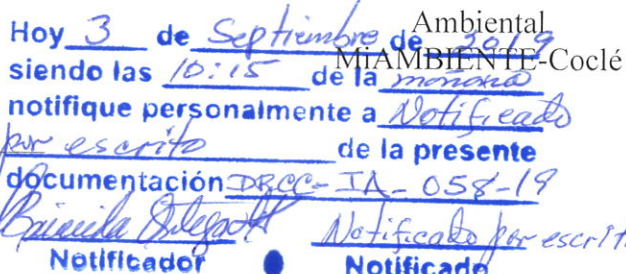 Ambiental
MiAMBIENTE-Coclé
Hoy 3 de Septiembre de 2019
siendo las 10:15 de la mañana
notifique personalmente a Notificado
por escrito de la presente
documentación DRCC-IA-058-19
Notificador Notificado por escrito
Notificado